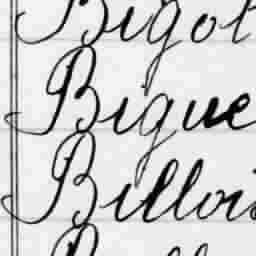 Bigot
Bigue
Billois